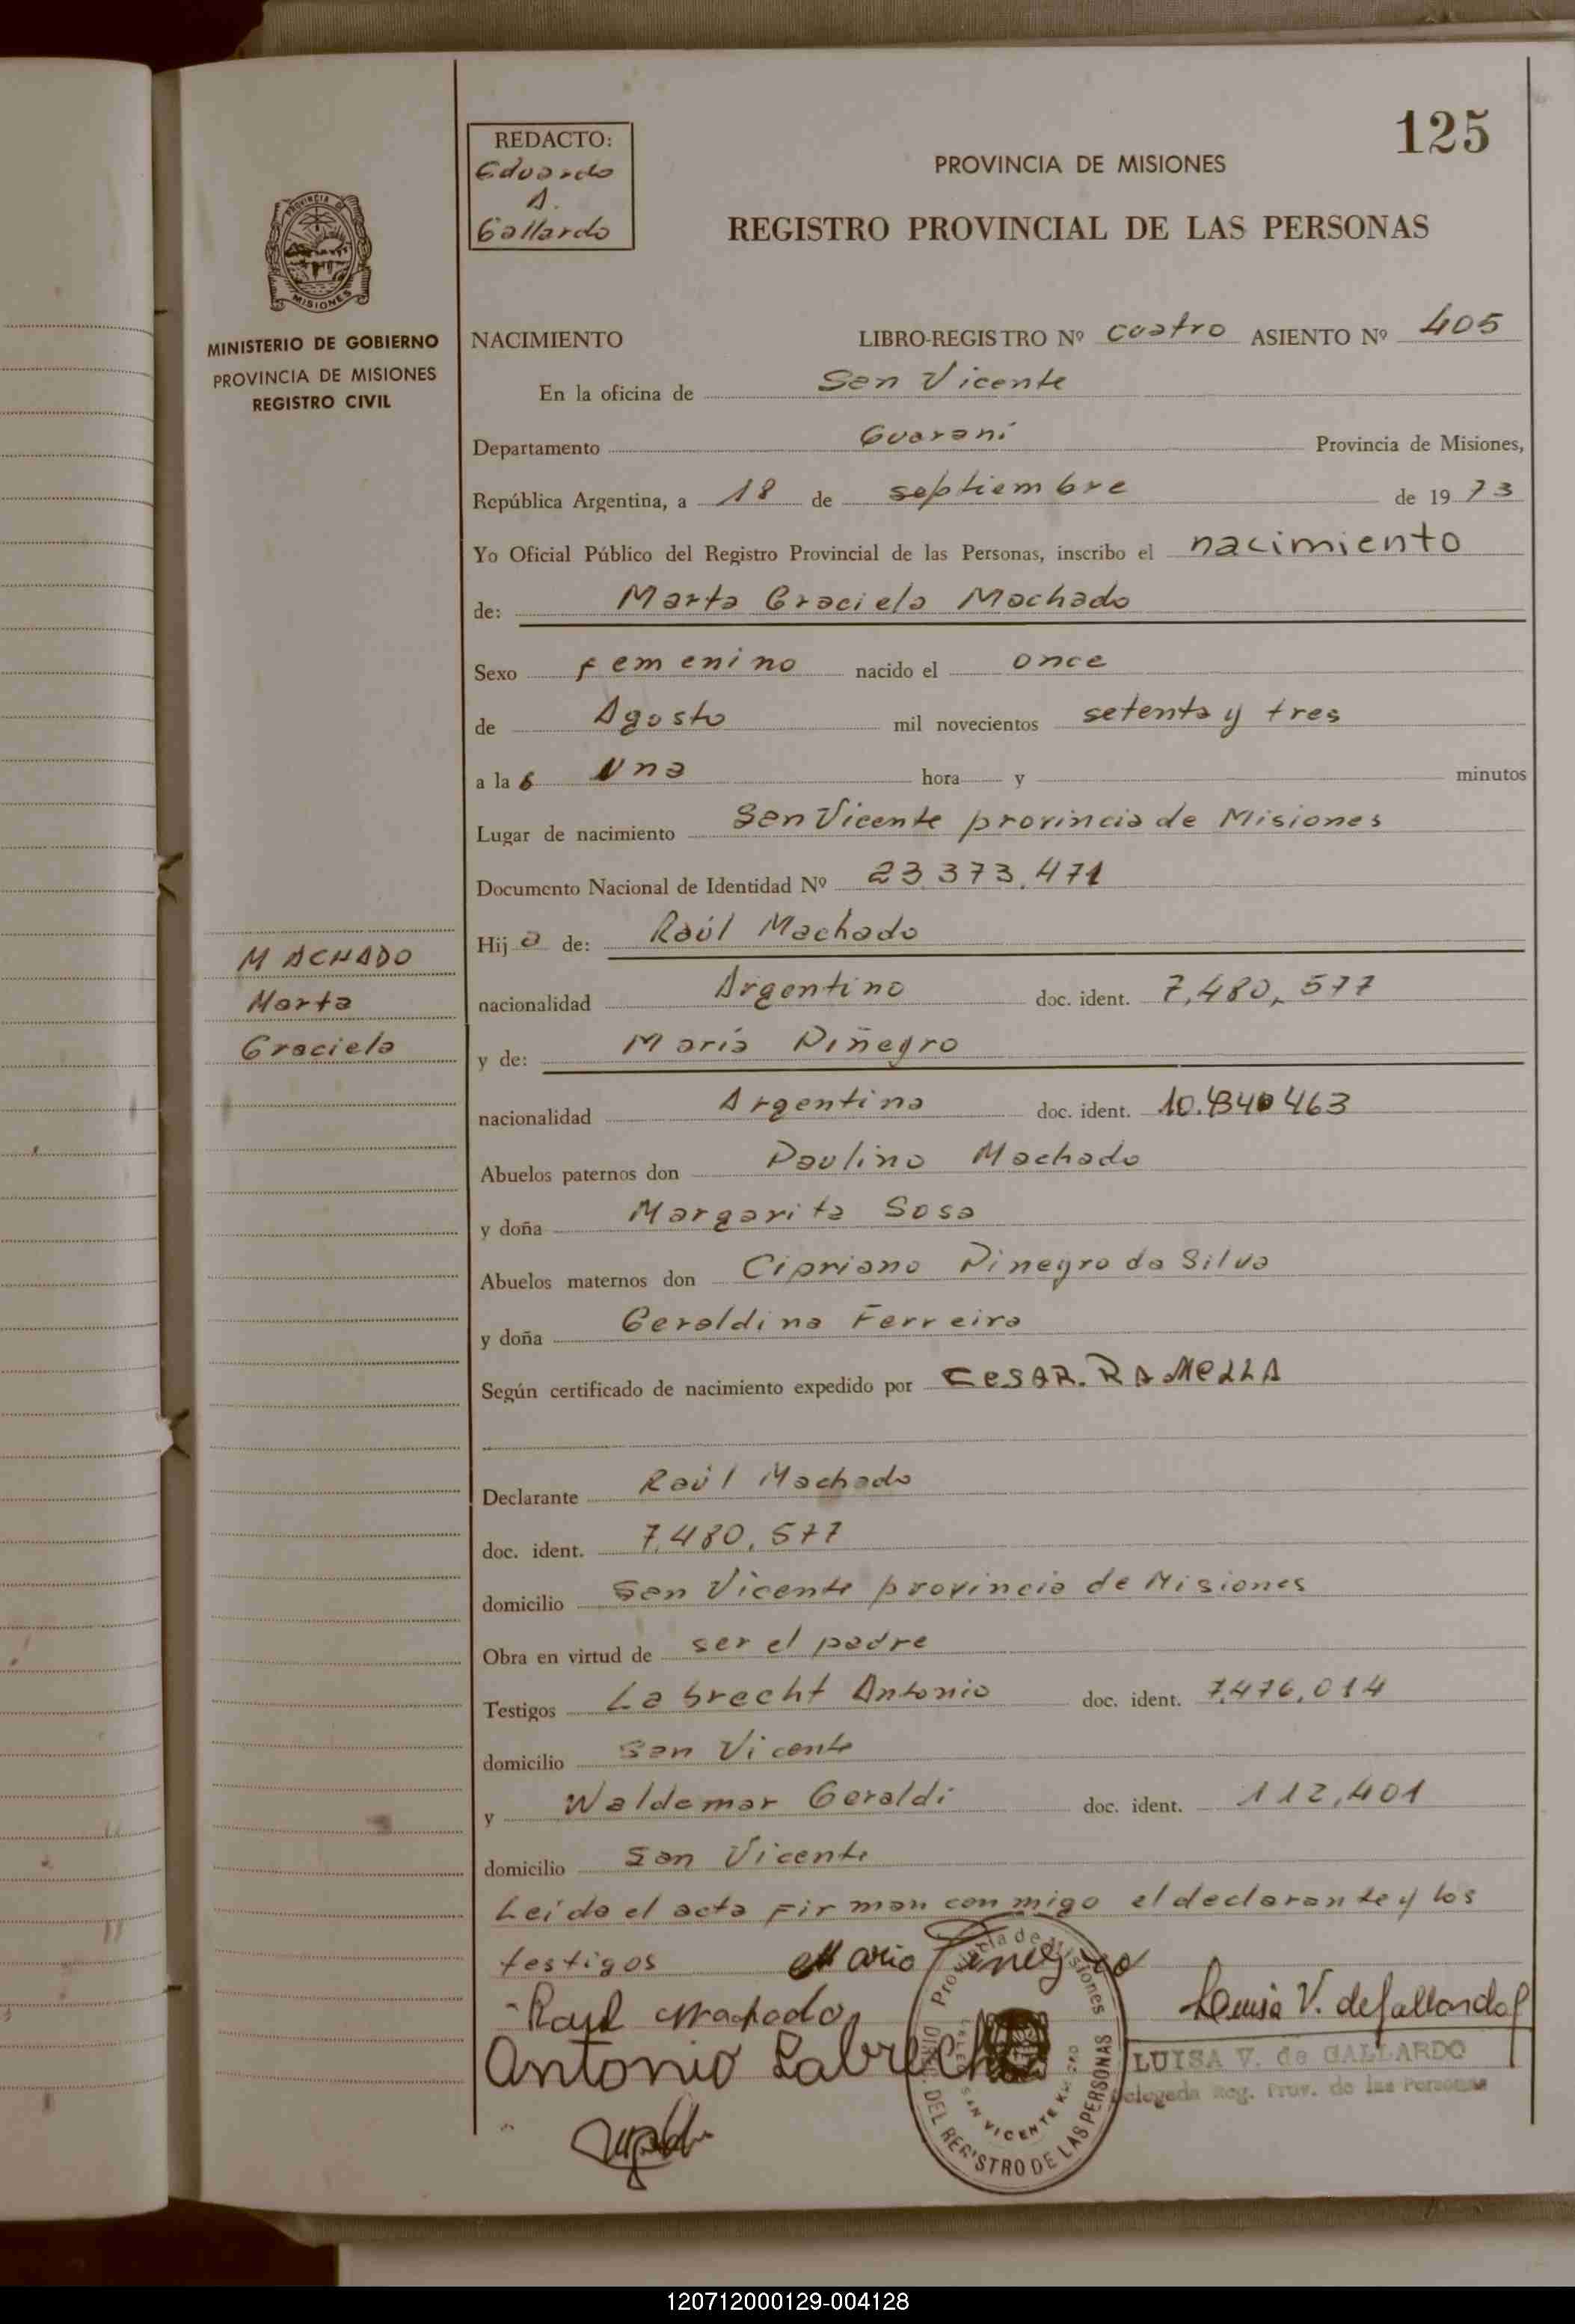 125
REDACTO:
Eduardo
A.
Gallardo
PROVINCIA DE MISIONES
REGISTRO PROVINCIAL DE LAS PERSONAS
PROVINCIA DE
MISIONES
MINISTERIO DE GOBIERNO
PROVINCIA DE MISIONES
REGISTRO CIVIL
NACIMIENTO LIBRO-REGISTRO Nº cuatro ASIENTO Nº 405
En la oficina de San Vicente
Departamento Guaraní Provincia de Misiones,
República Argentina, a 18 de septiembre de 1973
Yo Oficial Público del Registro Provincial de las Personas, inscribo el nacimiento
de: Marta Graciela Machado
Sexo femenino nacido el once
de Agosto mil novecientos setenta y tres
a la s Una hora y minutos
Lugar de nacimiento San Vicente provincia de Misiones
Documento Nacional de Identidad Nº 23.373.471
Hij a de: Raúl Machado
nacionalidad Argentino doc. ident. 7,480,577
y de: María Piñegro
nacionalidad Argentina doc. ident. 463
Abuelos paternos don Paulino Machado
y doña Margarita Sosa
Abuelos maternos don Cipriano Pinegro da Silva
y doña Geraldina Ferreira
Según certificado de nacimiento expedido por CESAR. RAMELLA
MACHADO
Marta
Graciela
Declarante Raúl Machado
doc. ident. 7.480.577
domicilio San Vicente provincia de Misiones
Obra en virtud de ser el padre
Testigos Labrecht Antonio doc. ident. 7,476,014
domicilio San Vicente
y Waldemar Geraldi doc. ident. 112,401
domicilio San Vicente
Leída el acta firman conmigo el declarante y los
testigos
Raul Machado
Luisa V. de Gallardo
Antonio Labrecht
LUISA V. de GALLARDO
Delegada Reg. Prov. de las Personas
Provincia de Misiones
DEL REGISTRO DE LAS PERSONAS
SAN VICENTE
120712000129-004128